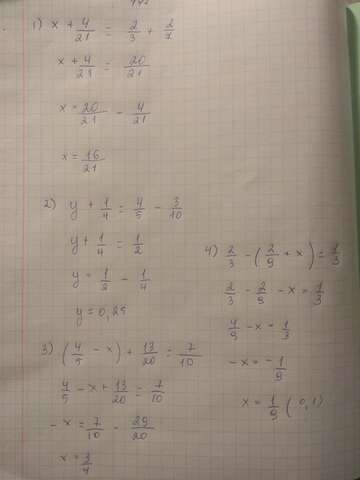 1) x + 4/21 = 2/3 + 2/7
x + 4/21 = 20/21
x = 20/21 - 4/21
x = 16/21
2) y + 1/4 = 4/5 - 3/10
y + 1/4 = 1/2
y = 1/2 - 1/4
y = 0,25
3) (4/5 - x) + 13/20 = 7/10
4/5 - x + 13/20 = 7/10
- x = 7/10 - 29/20
x = 3/4
4) 2/3 - (2/9 + x) = 1/3
2/3 - 2/9 - x = 1/3
4/9 - x = 1/3
- x = - 1/9
x = 1/9 (0,1)